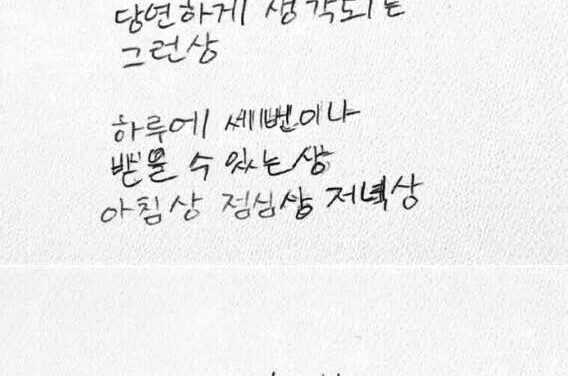 당연하게 생각되는
그런상
하루에 세번이나
받을 수 있는상
아침상 점심상 저녁상